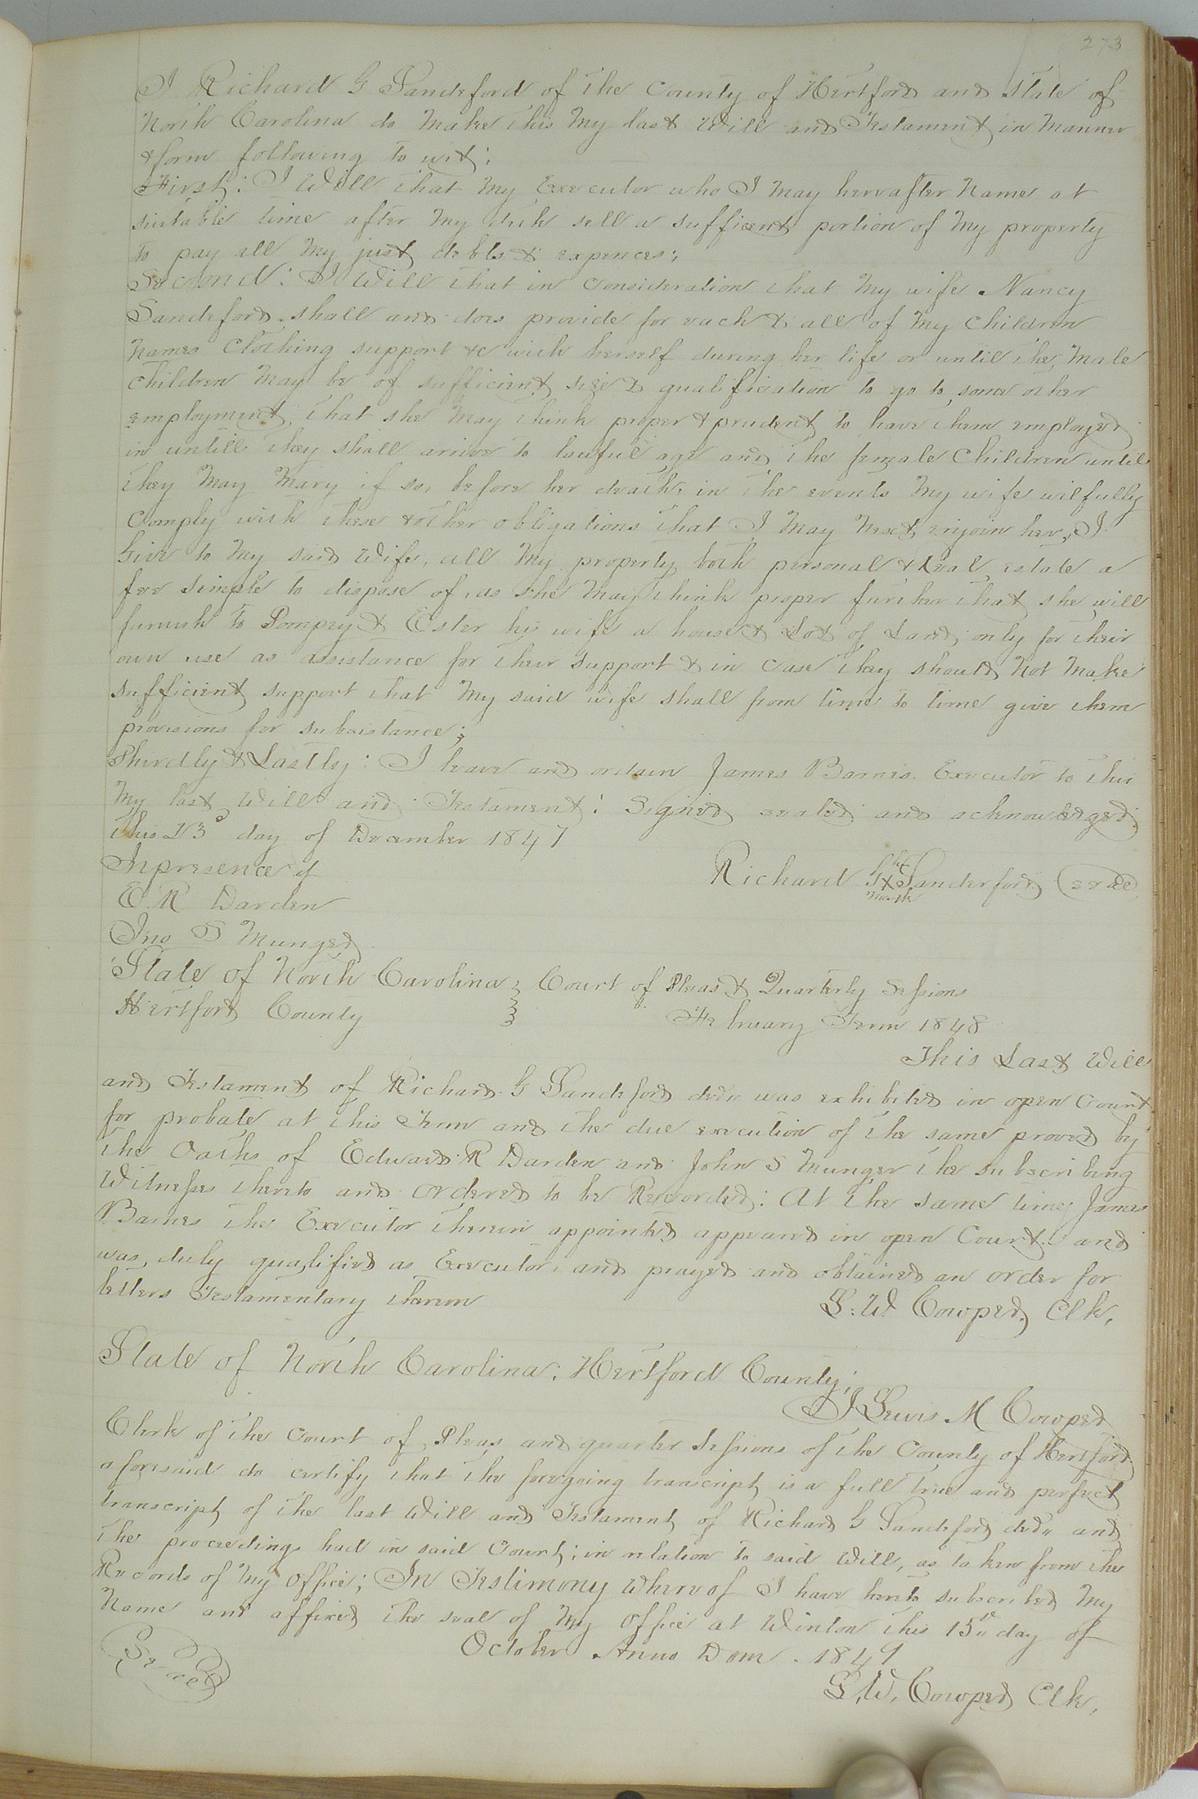 273
I Richard G Sandeford of the County of Hertford and State of
North Carolina do Make this My last Will and Testament in Manner
& form following to wit;
First: I Will that My Executor who I May hereafter Name at
suitable time after My deth sell a sufficent portion of My property
to pay all My just debts & expences;
Second: I Will that in Consideration that My wife Nancy
Sandeford shall and does provide for each & all of My Children
Names Clothing support &c with herself during her life or until the Male
Children May be of sufficient size & qualification to go to some other
employment, that she May think proper & prudent to have them employed
in untill they shall arive to lawful age and the female Children until
they May Mary if so, before her death, in the events My wife wilfully
Comply with these & other obligations that I May Next enjoin her, I
Give to My said Wife, all My property both personal & Real estate a
fee simple to dispose of, as she May think proper further that she will
furnish to Pompey & Ester his wife a house & Lot of Land only for their
own use as assistance for their support & in case they should Not Make
sufficient support that My said wife shall from time to time give them
provisions for subsistance;
Thirdly & Lastly: I leave and ordain James Barnes Executor to this
My last Will and Testament: Signed sealed and acknowledged
this 23d day of December 1847
In presence of
Richard G X Sandeford (seal)
his
mark
E. R Darden
Jno S Munger
State of North Carolina } Court of Pleas & Quarterly Sessions
Hertford County } February Term 1848
This Last Will
and Testament of Richard G Sandeford decd was exhibited in open Court
for probate at this Term and the due execution of the same proved by
the Oaths of Edward R Darden and John S Munger the subscribing
Witnesses thereto and ordered to be Recorded: At the same time James
Barnes the Executor therein appointed appeared in open Court and
was duly qualified as Executor, and prayed and obtained an order for
letters Testamentary thereon
L. W Cowper, Clk,
State of North Carolina; Hertford County;
I Lewis M Cowper
Clerk of the Court of Pleas and quarter Sessions of the County of Hertford
aforesaid do certify that the foregoing transcript is a full true and perfect
transcript of the last Will and Testament of Richard G Sandeford decd and
the proceedings had in said Court; in relation to said Will, as taken from the
Records of My Office; In Testimony Whereof I have hereto subscribed My
Name and affixed the seal of My Office at Winton this 15th day of
October Anno Dom. 1849
(Seal)
L. W. Cowper Clk,